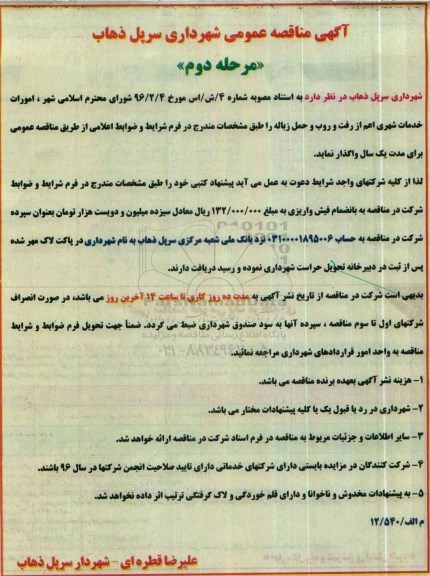 آگهی مناقصه عمومی شهرداری سرپل ذهاب
«مرحله دوم»
شهرداری سرپل ذهاب در نظر دارد به استناد مصوبه شماره ۴/ش/اس مورخ ۹۶/۲/۴ شورای محترم اسلامی شهر ، امورات
خدمات شهری اعم از رفت و روب و حمل زباله را طبق مشخصات مندرج در فرم شرایط و ضوابط اعلامی از طریق مناقصه عمومی
برای مدت یک سال واگذار نماید.
لذا از کلیه شرکتهای واجد شرایط دعوت به عمل می آید پیشنهاد کتبی خود را طبق مشخصات مندرج در فرم شرایط و ضوابط
شرکت در مناقصه به بانضمام فیش واریزی به مبلغ ۱۳۲/۰۰۰/۰۰۰ ریال معادل سیزده میلیون و دویست هزار تومان بعنوان سپرده
شرکت در مناقصه به حساب ۰۳۱۰۰۰۰۱۸۹۵۰۰۶ نزد بانک ملی شعبه مرکزی سرپل ذهاب به نام شهرداری در پاکت لاک مهر شده
پس از ثبت در دبیرخانه تحویل حراست شهرداری نموده و رسید دریافت دارند.
بدیهی است شرکت در مناقصه از تاریخ نشر آگهی به مدت ده روز کاری تا ساعت ۱۴ آخرین روز می باشد، در صورت انصراف
شرکتهای اول تا سوم مناقصه ، سپرده آنها به سود صندوق شهرداری ضبط می گردد. ضمناً جهت تحویل فرم ضوابط و شرایط
مناقصه به واحد امور قراردادهای شهرداری مراجعه نمائید.
۱- هزینه نشر آگهی بعهده برنده مناقصه می باشد.
۲- شهرداری در رد یا قبول یک یا کلیه پیشنهادات مختار می باشد.
۳- سایر اطلاعات و جزئیات مربوط به مناقصه در فرم اسناد شرکت در مناقصه ارائه خواهد شد.
۴- شرکت کنندگان در مزایده بایستی دارای شرکتهای خدماتی دارای تایید صلاحیت انجمن شرکتها در سال ۹۶ باشند.
۵- به پیشنهادات مخدوش و ناخوانا و دارای قلم خوردگی و لاک گرفتگی ترتیب اثر داده نخواهد شد.
م الف/۱۲/۵۴۰
علیرضا قطره ای - شهردار سرپل ذهاب